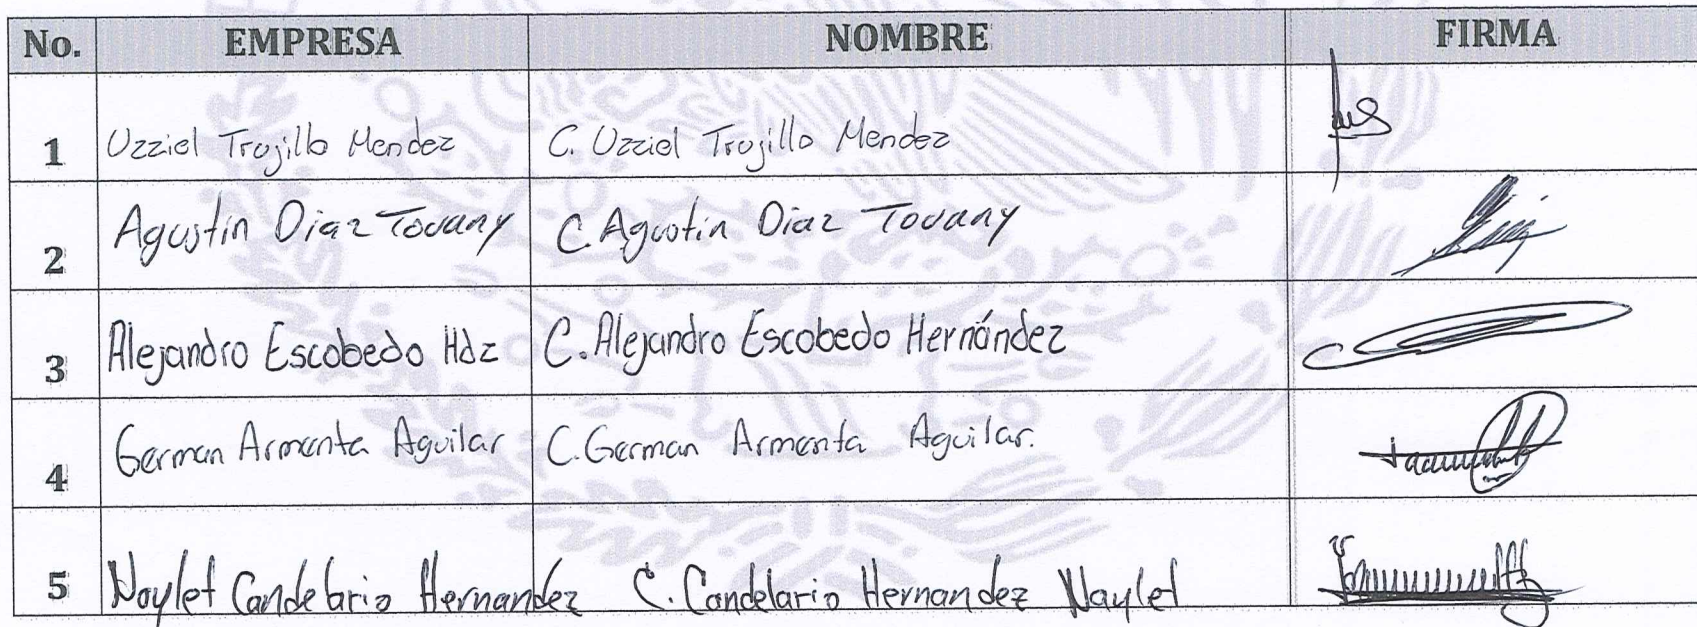 No. EMPRESA NOMBRE FIRMA
1 Uzziel Trujillo Mendez C. Uzziel Trujillo Mendez
2 Agustin Diaz Tovany C. Agustin Diaz Tovany
3 Alejandro Escobedo Hdz C. Alejandro Escobedo Hernández
4 German Armenta Aguilar C. German Armenta Aguilar.
5 Naylet Candelario Hernandez C. Candelario Hernandez Naylet